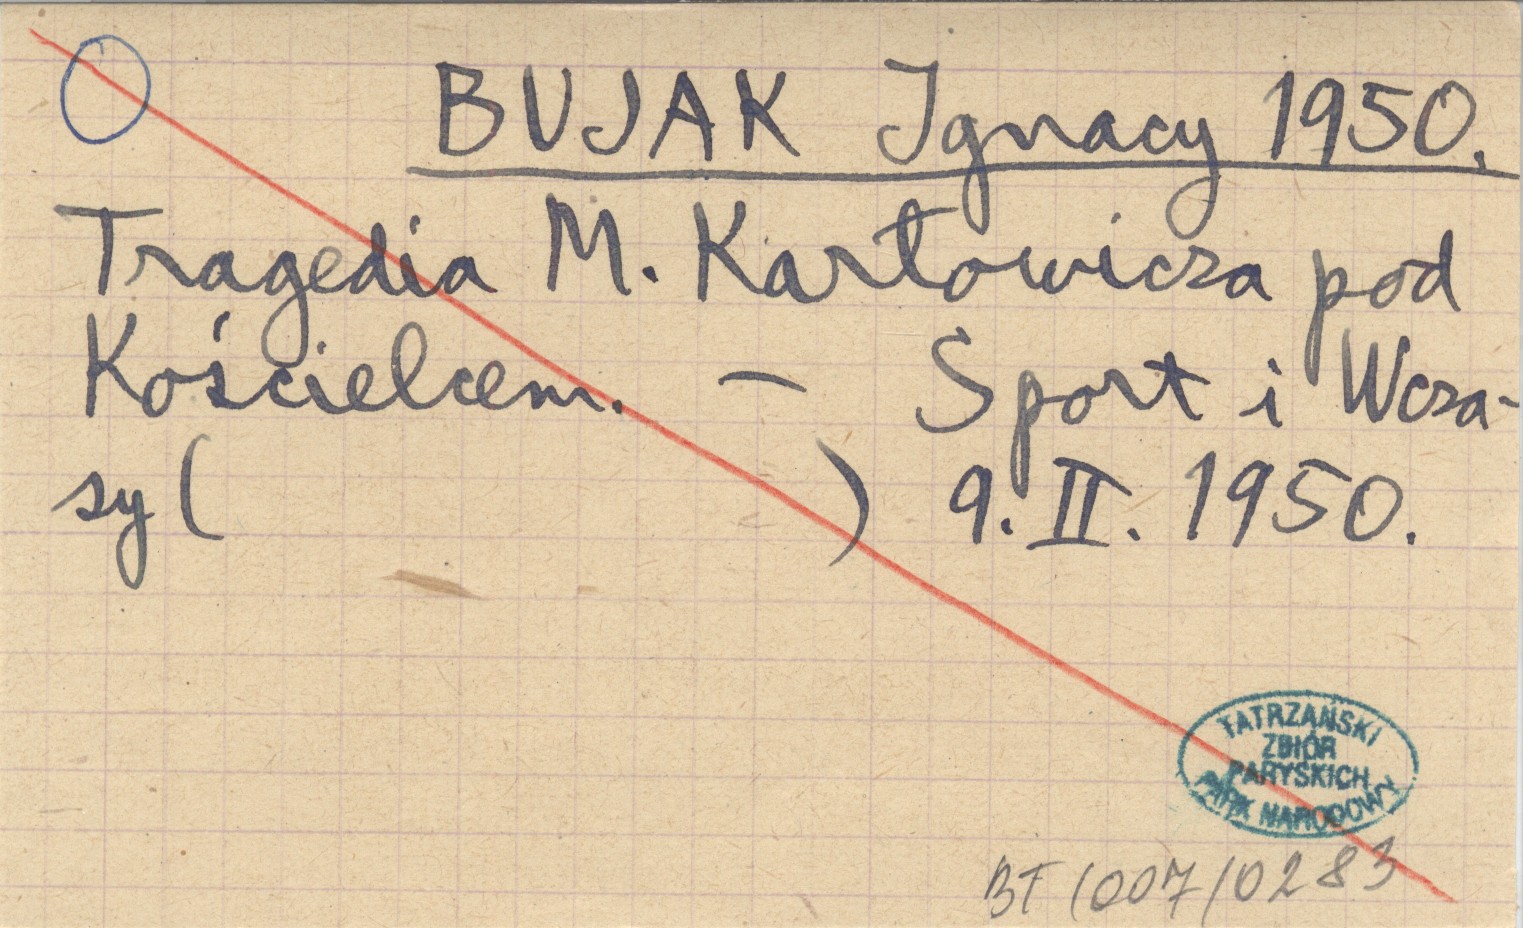 BUJAK Ignacy 1950.
Tragedia M. Karłowicza pod
Kościelcem. — Sport i Wcza-
sy (                    ) 9. II. 1950.
TATRZAŃSKI
ZBIÓR
PARYSKICH
PARK NARODOWY
BT/007/0283